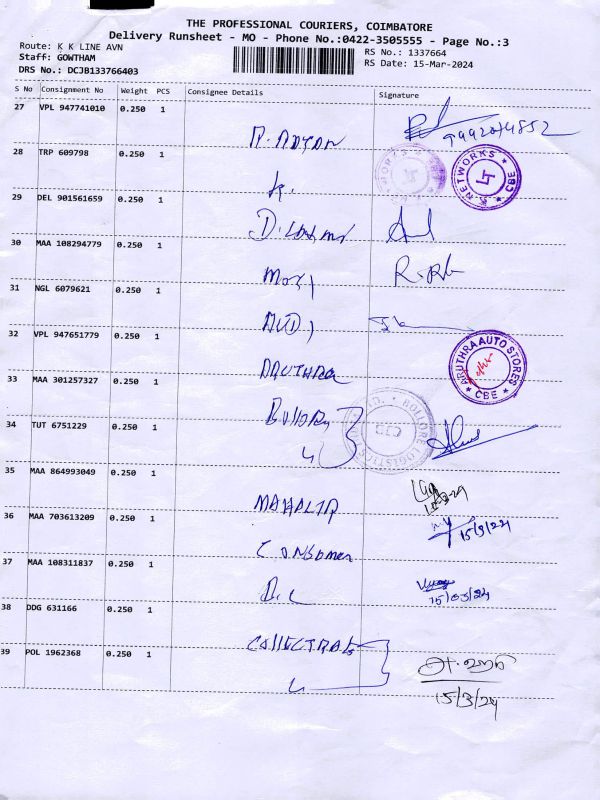 THE PROFESSIONAL COURIERS, COIMBATORE
Delivery Runsheet - MO - Phone No.:0422-3505555 - Page No.:3
Route: K K LINE AVN
Staff: GOWTHAM
DRS No.: DCJB133766403
RS No.: 1337664
RS Date: 15-Mar-2024
S No Consignment No Weight PCS Consignee Details Signature
27 VPL 947741010 0.250 1
28 TRP 609798 0.250 1
K. NETWORKS ★ CBE ★
29 DEL 901561659 0.250 1
30 MAA 108294779 0.250 1
31 NGL 6079621 0.250 1
32 VPL 947651779 0.250 1
ARUTHRA AUTO STORES ★ CBE ★
33 MAA 301257327 0.250 1
34 TUT 6751229 0.250 1
BOLLORE LOGISTICS
35 MAA 864993049 0.250 1
36 MAA 703613209 0.250 1
15/3/24
CONSUMER
37 MAA 108311837 0.250 1
15/03/24
38 DDG 631166 0.250 1
COLLECTRATE
39 POL 1962368 0.250 1
15/3/24